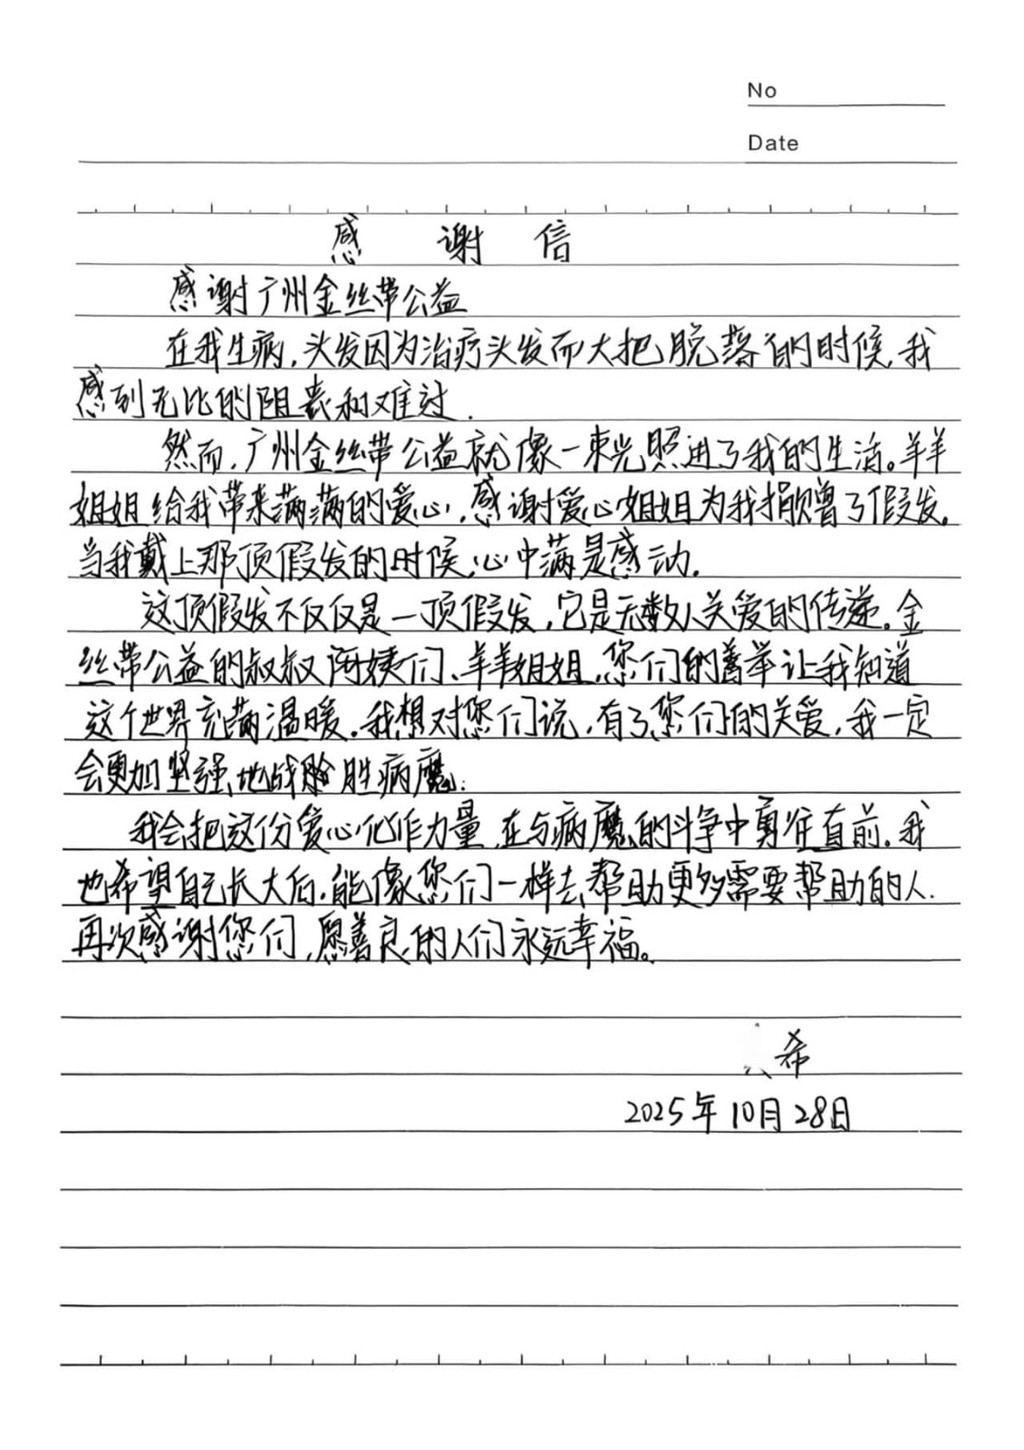 No
Date
感 谢 信
感谢广州金丝带公益
在我生病,头发因为治疗头发而大把脱落的时候,我
感到无比的阻丧和难过.
然而,广州金丝带公益就像一束光照进了我的生活。羊羊
姐姐给我带来满满的爱心,感谢爱心姐姐为我捐赠了假发。
当我戴上那顶假发的时候,心中满是感动.
这顶假发不仅仅是一顶假发,它是无数人关爱的传递。金
丝带公益的叔叔阿姨们、羊羊姐姐,您们的善举让我知道
这个世界充满温暖.我想对您们说,有了您们的关爱,我一定
会更加坚强地战胜病魔.
我会把这份爱心化作力量,在与病魔的斗争中勇往直前.我
也希望自己长大后,能像您们一样去帮助更多需要帮助的人.
再次感谢您们,愿善良的人们永远幸福。
希
2025年10月28日